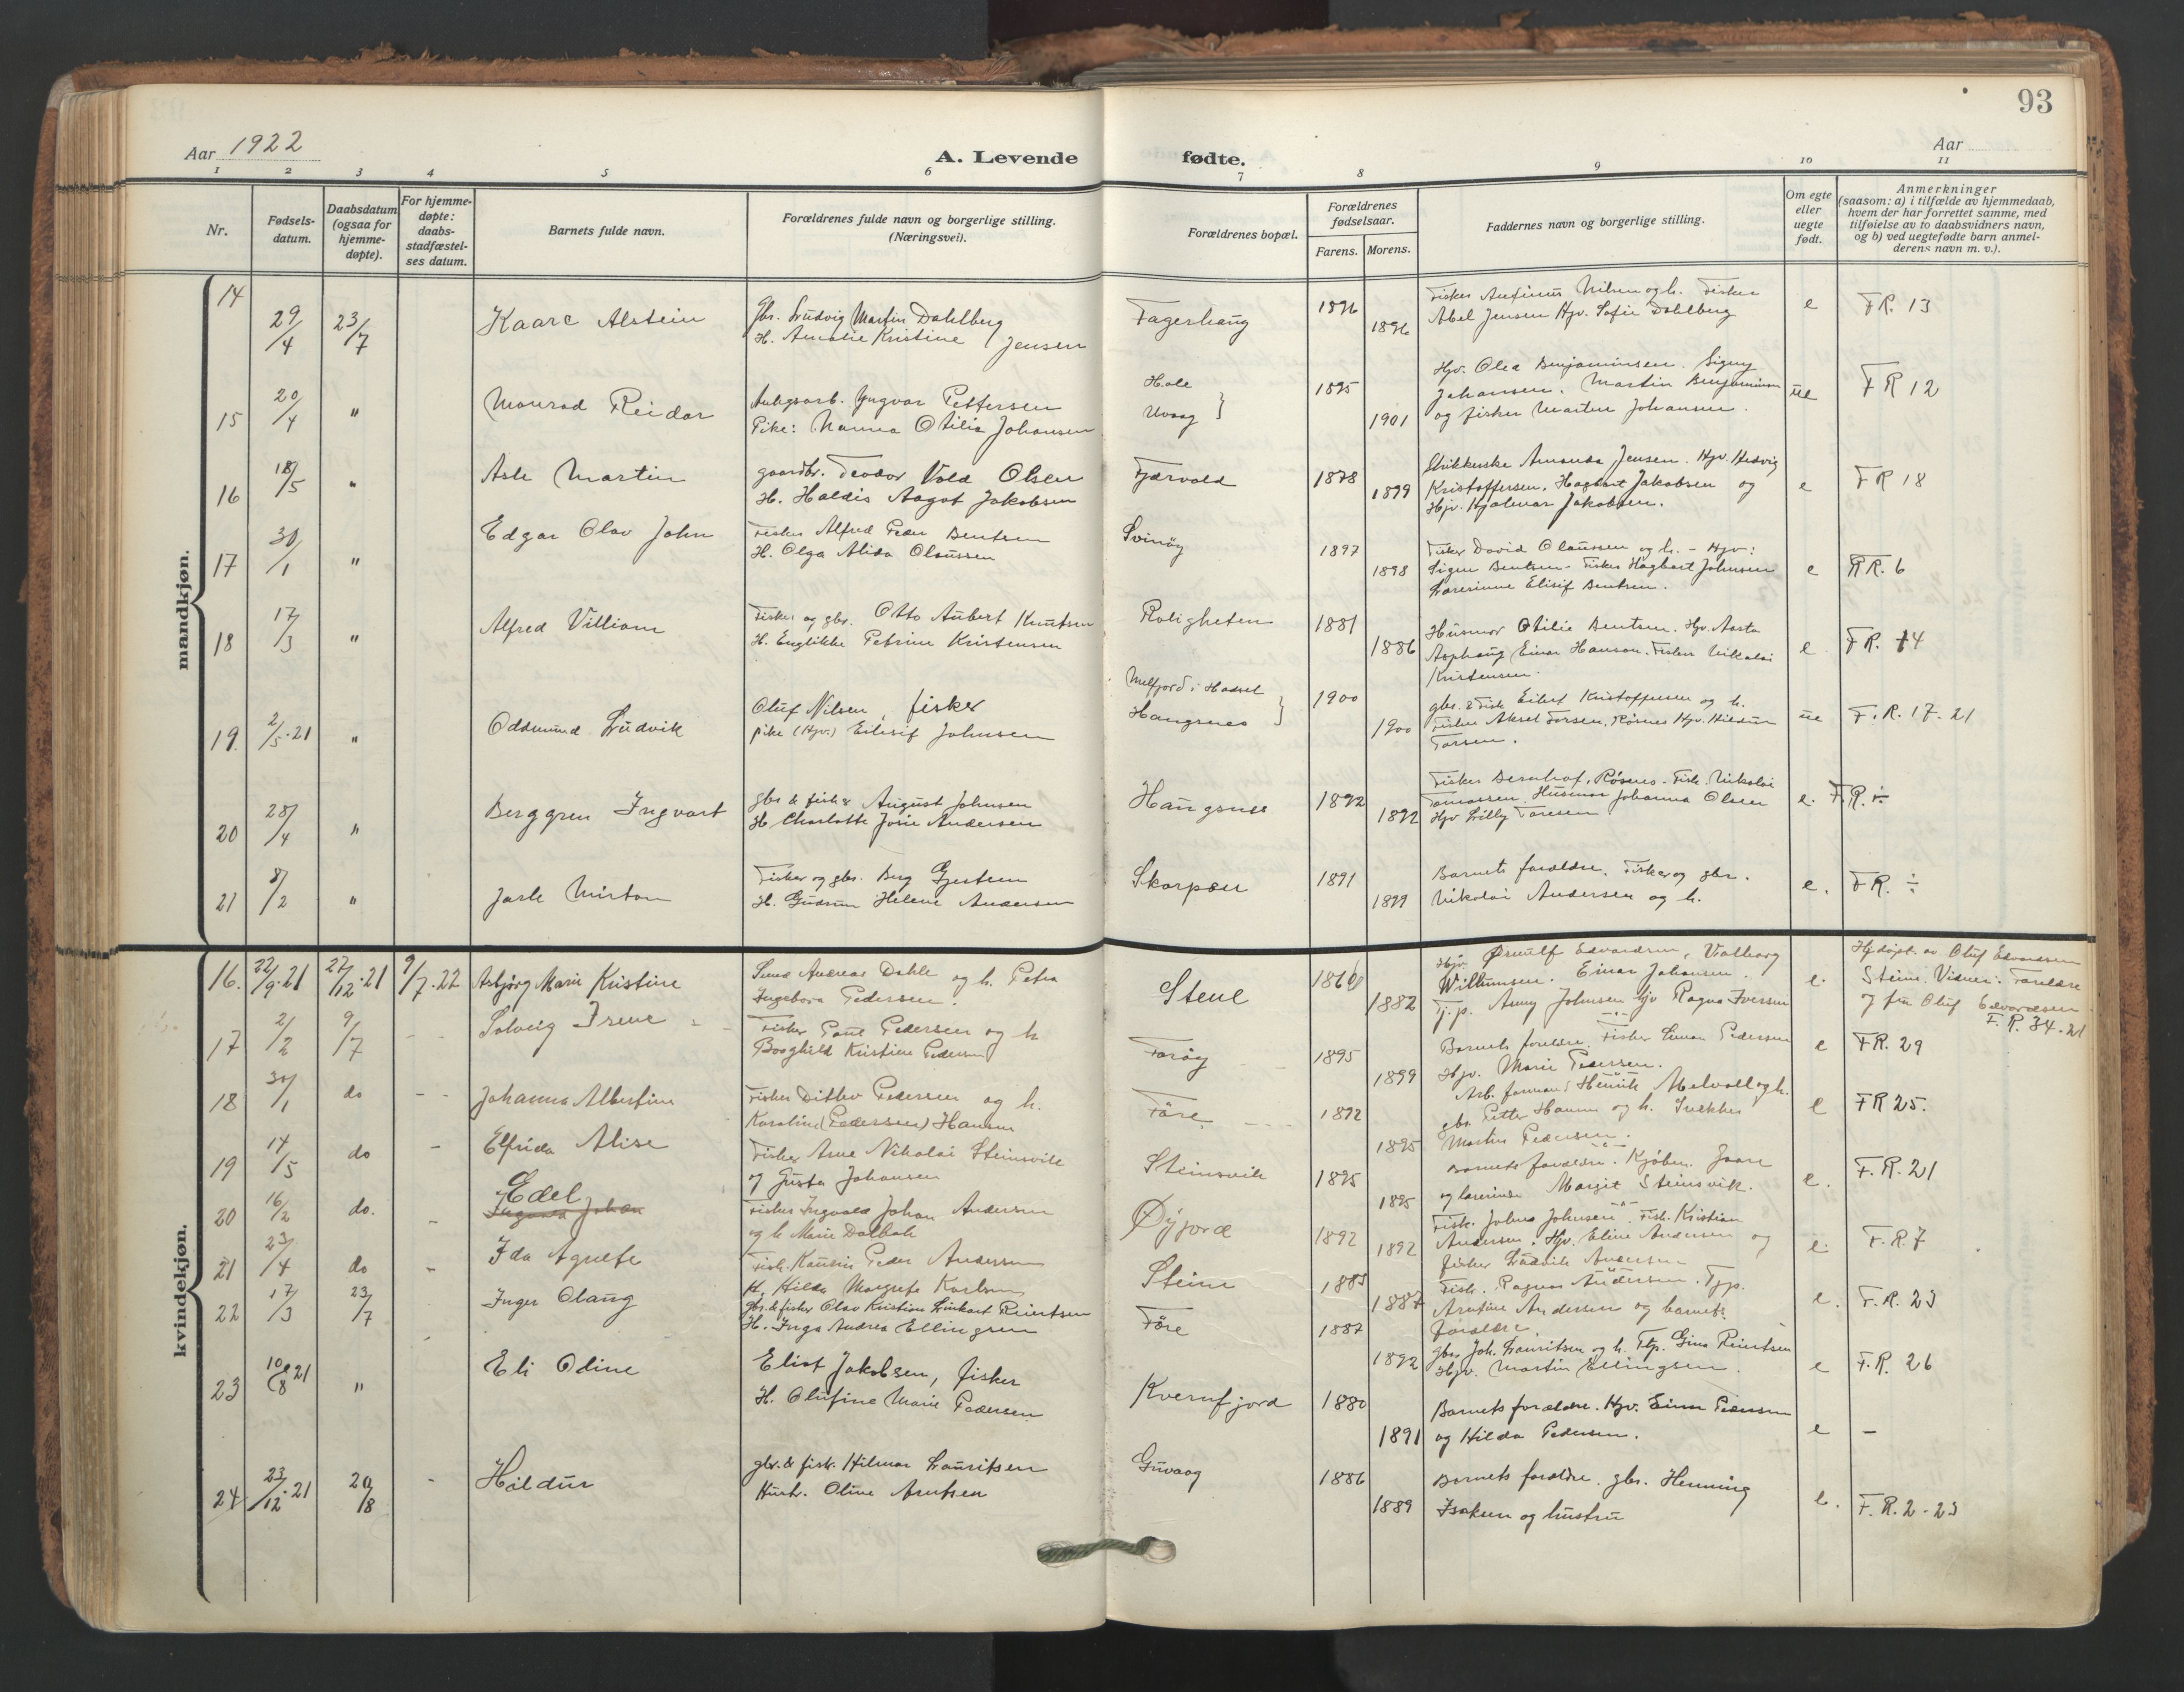 93
Aar 1922
A. Levende fødte.
Aar
1 2 3 4 5 6 7 8 9 10 11
Nr.
Fødsels-datum.
Daabsdatum (ogsaa for hjemme-døpte).
For hjemme-døpte: daabs-stadfæstel-ses datum.
Barnets fulde navn.
Forældrenes fulde navn og borgerlige stilling. (Næringsvei).
Forældrenes bopæl.
Forældrenes fødselsaar.
Farens. Morens.
Faddernes navn og borgerlige stilling.
Om egte eller uegte født.
Anmerkninger (saasom: a) i tilfælde av hjemmedaab, hvem der har forrettet samme, med tilføielse av to daabsvidners navn, og b) ved uegtefødte barn anmel-derens navn m. v.).
mandkjøn.
14 29/4 23/7 Kaare Alstein
Gbr. Ludvig Martin Dahlberg
H. Amalie Kristine Jensen
Fagerhaug 1896 1896
Fisker Antinus Nilsen og h. Fisker
Abel Jensen Hjv. Sofie Dahlberg
e FR. 13
15 20/4 " Monrad Reidar
Anlegsarb. Yngvar Pettersen
Pike: Nanna Otilie Johansen
Hole
Uvaag } 1895 1901
Hjv. Olea Benjaminsen. Signy
Johansen. Martin Benjaminsen
og fisker Martin Johansen.
ue FR 12
16 18/5 " Asle Martin
gaardbr. Teodor Vold Olsen
H. Haldis Aagot Jakobsen
Fjærvold 1878 1899
Strikkerske Amanda Jensen. Hjv. Hedvig
Kristoffersen. Hagbart Jakobsen og
Hjv. Hjalmar Jakobsen.
e FR 18
17 30/1 " Edgar Olav John
Fisker Alfred Peder Bentsen
H. Olga Alida Olaussen
Svinøy 1897 1898
Fisker David Olaussen og h. - Hjv:
Signe Bentsen - Fisker Hagbart Johnsen
Lærerinne Elisif Bentsen.
e FR. 6
18 17/3 " Alfred Villiam
Fisker og gbr. Otto Aubert Knutsen
H. Englikke Petrine Kristensen
Roligheten 1881 1886
Husmor Otilie Bentsen. Hjv. Aasta
Asphaug Einar Hanson. Fisker Nikolai
Kristensen.
e FR. 14
19. 2/5.21 " Oddmund Ludvik
Oluf Nilsen, fisker
pike (Hjv.) Eilisif Johnsen
Melfjord i Hadsel
Haugsnes } 1900 1900
gbr. & Fisk Eilert Kristoffersen og h.
Fisker Aksel Torsen, Røsnes Hjv. Hildur
Torsen.
ue F.R. 17-21
20 28/4 " Berggren Ingvart
gbr & fisker August Johnsen
H Charlotte Josie Andersen
Haugsnes 1892 1892
Fisker Bernhof. Røsnes. Fisk. Nikolai
Tomassen. Husmor Johanna Olsen
Hjv Lilly Toresen
e. F.R. ÷
21 8/2 " Jarle Mirton
Fisker og gbr. Berg Gjestum
H. Gudrun Helene Andersen
Skarpæu 1891 1899
Barnets forældre. Fisker og gbr.
Nikolai Andersen og h.
e. FR. ÷
kvindekjøn.
16. 22/9.21 27/12.21 9/7.22 Asbjørg Marie Kristine
Smed Andreas Dahle og h. Petra
Ingeborg Pedersen.
Stene 1882
Hjv. Ørnulf Edvardsen, Valborg
Willumsen. Einar Johansen.
Tj.p. Anny Johnsen hjv Ragna Iversen
e.
Hjdøpt. av Oluf Edvardsen
Steine. Vidner: Forældre
og fru Oluf Edvardsen
F.R. 34-21
17 2/2 9/7 Solveig Irene
Fisker Paul Pedersen og h
Borghild Kristine Pedersen
Forøy 1895 1899
Barnets foreldre. Fisker Simon Pedersen
Hjv. Marie Pedersen.
e FR. 29
18 30/1 do Johanna Albertine
Fisker Ditlev Pedersen og h.
Karoline (Pedersen) Hansen
Føre 1892 1895
Arb. formand Henrik Melvoll og h.
gbr. Petter Hansen og h.
Martin Pedersen.
e FR 25.
19 14/5 do Elfrida Alise
Fisker Arne Nikolai Steinsvik
og Gusta Johansen
Steinsvik 1895 1895
Barnets forældre. Kjøbm. Joare
og lærerinde Margit Steinsvik.
e. F.R. 21
20 16/2 do. Edel
Fisker Ingvald Johan Andersen
og h Marie Dalbak
Øyjord 1892 1892
Fisk. Johns Johnsen. Fisk. Kristian
Andersen. Hjv. Eline Andersen og
fisker Ludvik Andersen
e. F.R. 7
21 23/4 do Ida Agnete
Fisk. Kausin Peder Andersen
H. Hilda Margrete Karlsen
Steine 1885 1887
Fisk. Ragnar Andersen. Tjp.
Arntine Andersen og barnets
forældre
e. F.R. 23
22 17/3 23/7 Inger Olaug
gbr. & fisker Olav Kristian Linkart Reintsen
H. Inga Andrea Ellingsen
Føre 1887 1892
gbr. Joh. Lauritsen og h. Tjp. Gina Reintsen
Hjv. Martin Ellingsen.
e F.R. 26
23 10/8 21 " Eli Odine
Eliot Jakobsen, fisker
H. Olufine Marie Pedersen
Kvernfjord 1880 1891
Barnets forældre. Hjv. Einar Pedersen
og Hilda Pedersen.
e -
24 23/12.21 20/8 Hildur
gbr. & fisk. Hilmar Lauritsen
Hustr. Oline Arntsen
Guvaag 1886 1889
Barnets forældre. gbr. Henning
Isaksen og hustru
e. F.R. 2-23